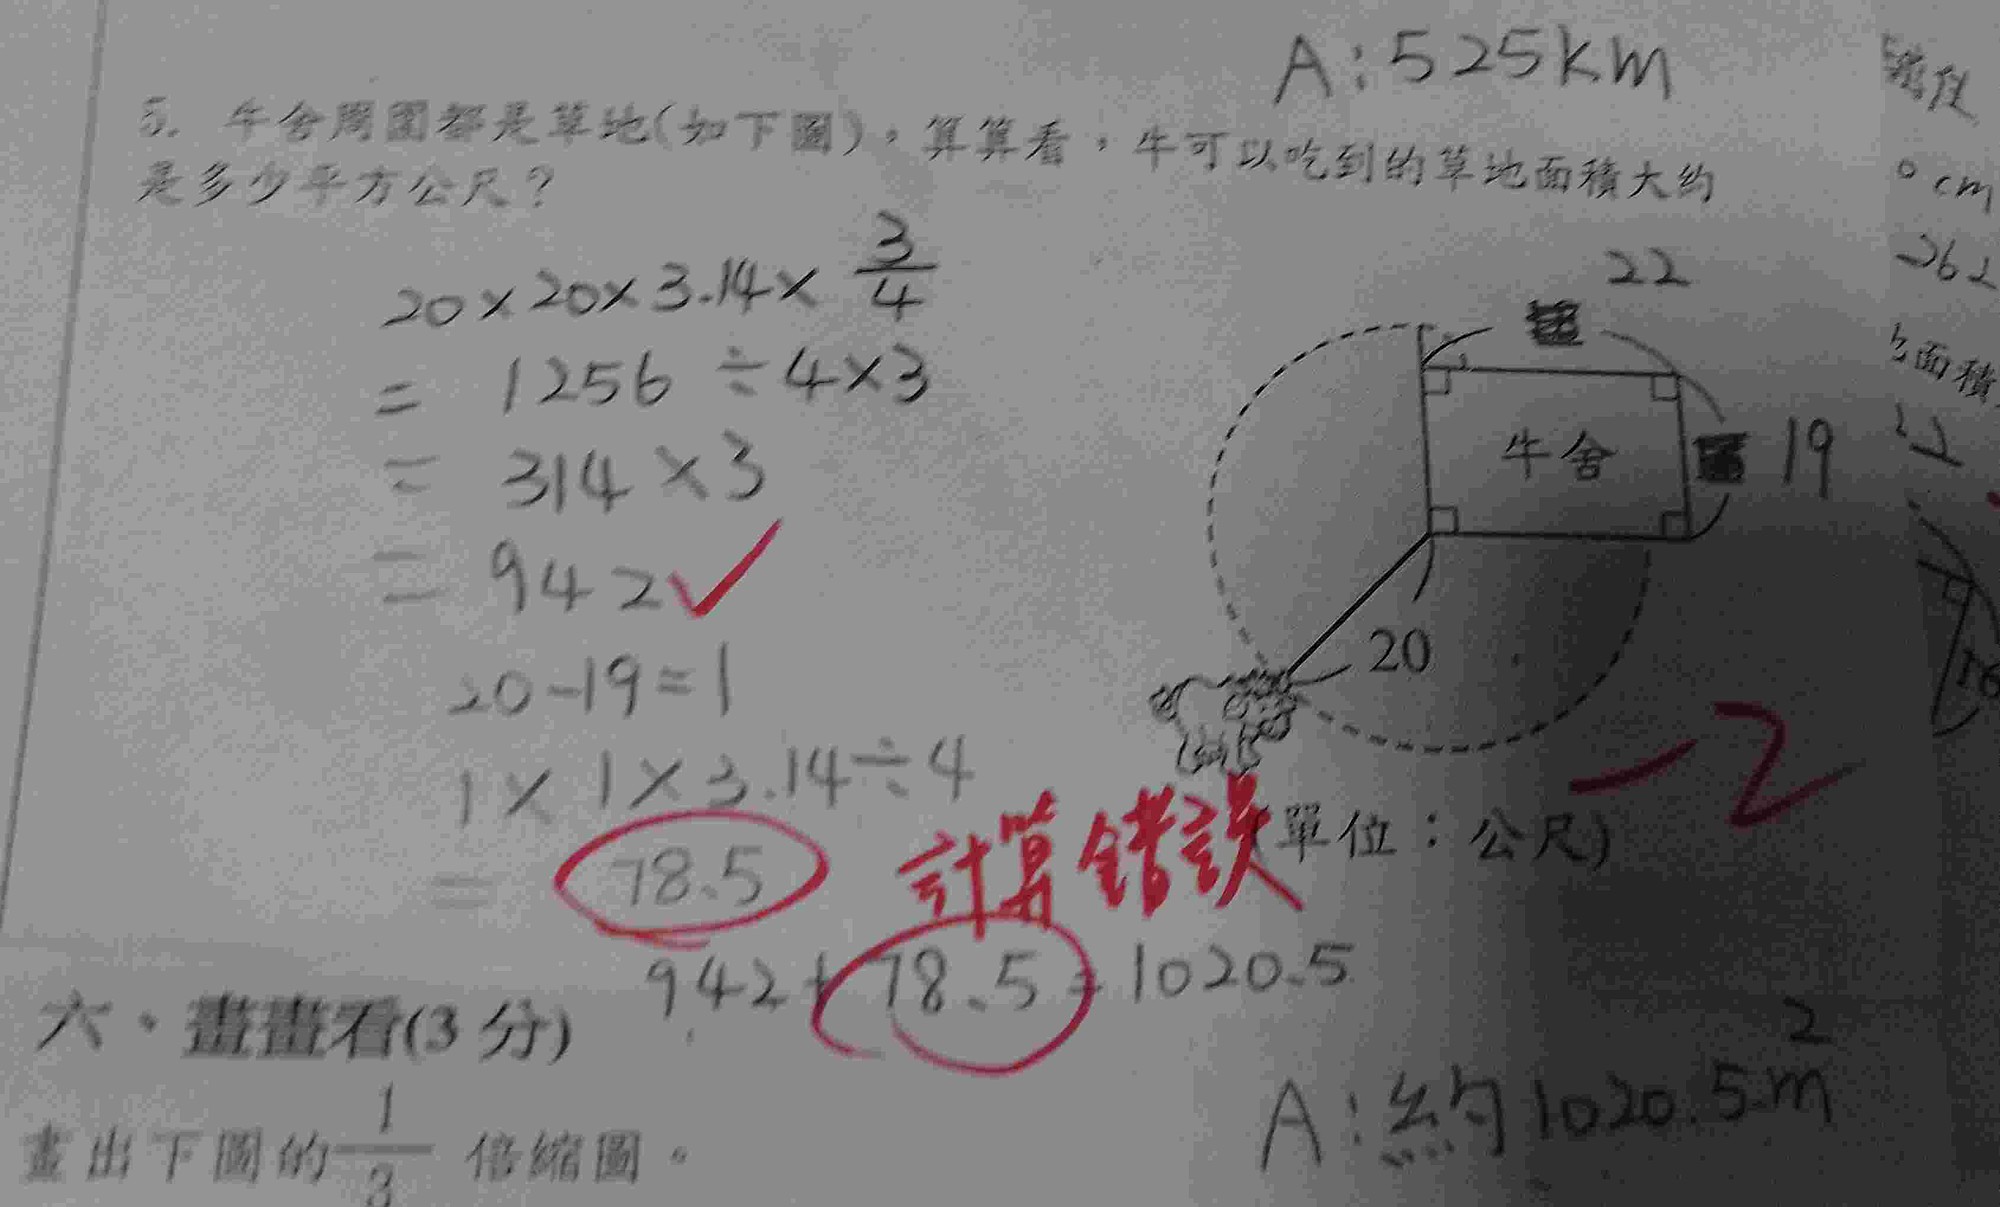 A:525km
5. 牛舍周圍都是草地(如下圖),算算看,牛可以吃到的草地面積大約
是多少平方公尺?
20×20×3.14×3/4
= 1256÷4×3
= 314×3
= 942
20-19=1
1×1×3.14÷4
= 78.5
計算錯誤
942+78.5=1020.5
A:約1020.5m²
22
牛舍
19
20
(單位:公尺)
-2
六、畫畫看(3分)
畫出下圖的1/3倍縮圖。
0cm
面積